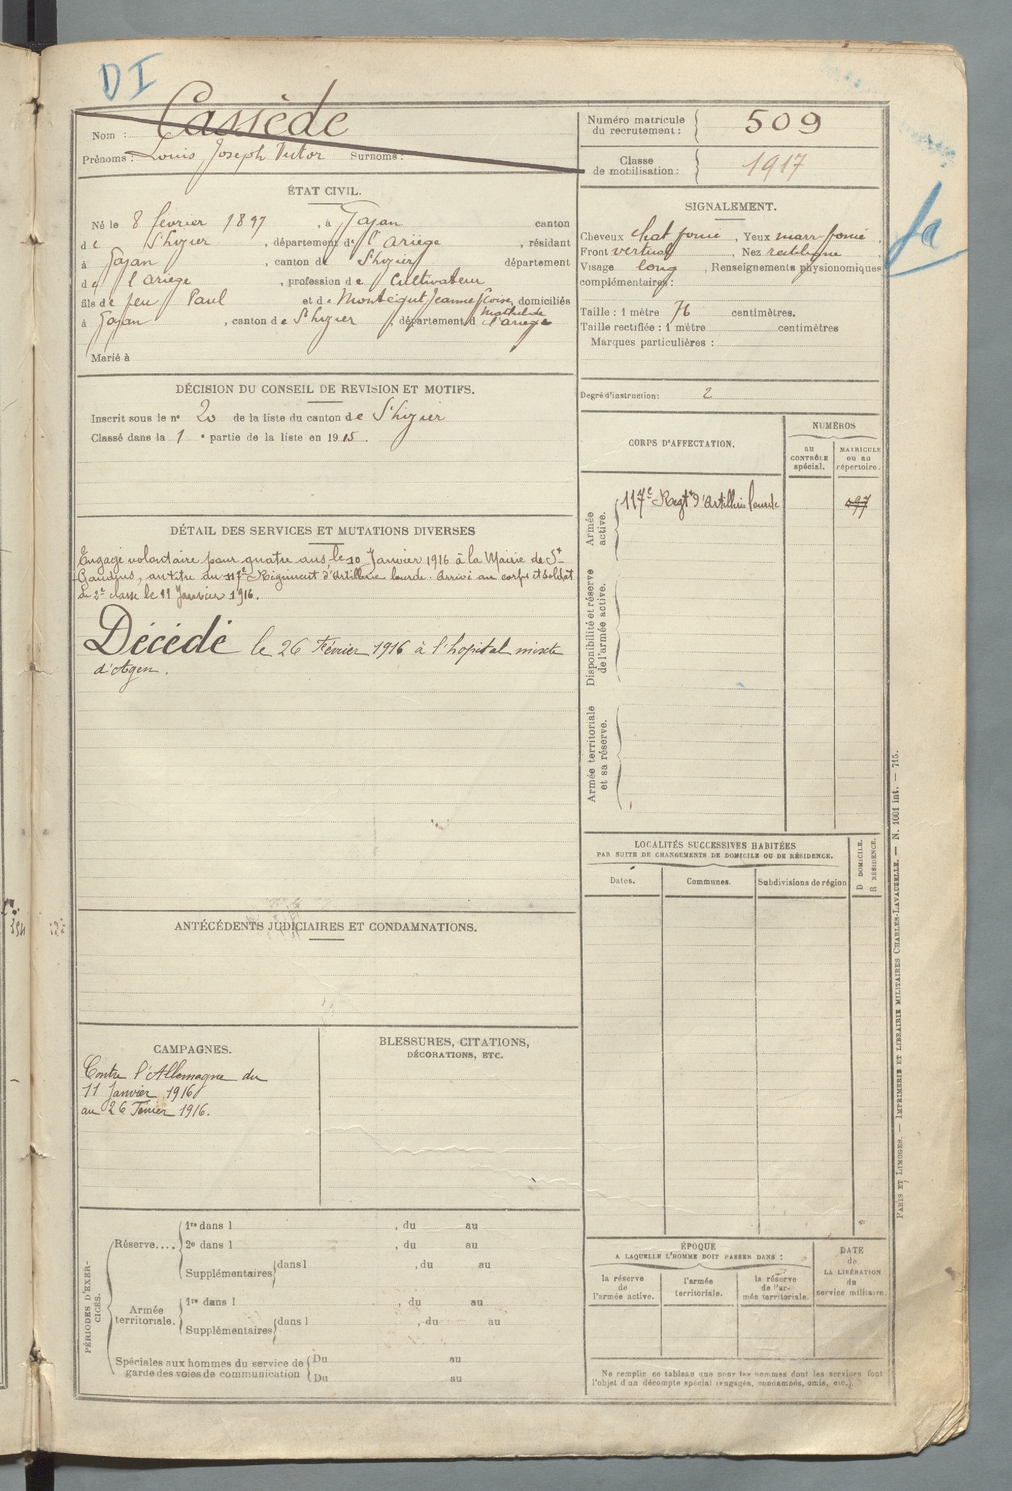 DI
Nom : Cassède
Prénoms : Louis Joseph Victor Surnoms :
ÉTAT CIVIL.
Né le 8 février 1897, à Gajan canton
de St Lizier, département de l'Ariège, résidant
à Gajan, canton de St Lizier département
de l'Ariège, profession de Cultivateur
fils de feu Paul et de Montégut Jeanne domiciliés
Mathilde
à Gajan, canton de St Lizier, département d l'Ariège
Marié à
DÉCISION DU CONSEIL DE REVISION ET MOTIFS.
Inscrit sous le n° 20 de la liste du canton de St Lizier
Classé dans la 1e partie de la liste en 1915.
DÉTAIL DES SERVICES ET MUTATIONS DIVERSES
Engagé volontaire pour quatre ans, le 10 Janvier 1916 à la Mairie de St-
Gaudens, au titre du 117e Régiment d'Artillerie lourde. Arrivé au corps et soldat
de 2e classe le 11 Janvier 1916.
Décédé le 26 Février 1916 à l'hopital mixte
d'Agen.
ANTÉCÉDENTS JUDICIAIRES ET CONDAMNATIONS.
CAMPAGNES.
Contre l'Allemagne du
11 Janvier 1916
au 26 Février 1916.
BLESSURES, CITATIONS,
DÉCORATIONS, ETC.
PÉRIODES D'EXER-
CICES.
Réserve....
1re dans l , du au
2e dans l , du au
Supplémentaires dans l , du au
Armée
territoriale.
1re dans l , du au
Supplémentaires dans l , du au
Spéciales aux hommes du service de
garde des voies de communication
Du au
Du au
Numéro matricule
du recrutement : 509
Classe
de mobilisation : 1917
SIGNALEMENT.
Cheveux chat foncé, Yeux marr foncé,
Front vertical, Nez rectiligne
Visage long, Renseignements physionomiques
complémentaires :
Taille : 1 mètre 76 centimètres.
Taille rectifiée : 1 mètre centimètres
Marques particulières :
Degré d'instruction : 2
CORPS D'AFFECTATION.
NUMÉROS
au
CONTRÔLE
spécial.
MATRICULE
ou au
répertoire.
Armée
active.
117e Regt d'Artillerie lourde
Disponibilité et réserve
de l'armée active.
Armée territoriale
et sa réserve.
LOCALITÉS SUCCESSIVES HABITÉES
PAR SUITE DE CHANGEMENTS DE DOMICILE OU DE RÉSIDENCE.
Dates.
Communes.
Subdivisions de région
D DOMICILE.
R RÉSIDENCE.
ÉPOQUE
A LAQUELLE L'HOMME DOIT PASSER DANS :
la réserve
de
l'armée active.
l'armée
territoriale.
la réserve
de l'ar-
mée territoriale.
DATE
de
LA LIBÉRATION
du
service militaire.
Ne remplir ce tableau que pour les hommes dont les services font
l'objet d'un décompte spécial (engagés, condamnés, omis, etc.).
PARIS ET LIMOGES. — IMPRIMERIE ET LIBRAIRIE MILITAIRES CHARLES-LAVAUZELLE. — N. 1001 int. — 715.